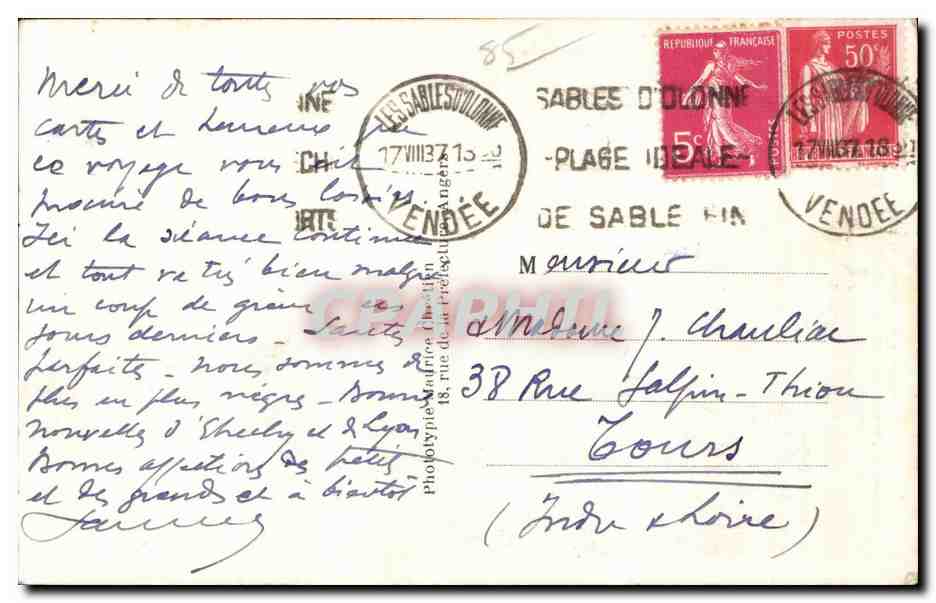 85
RÉPUBLIQUE FRANÇAISE
5c
POSTES
POSTES
50c
LES SABLES D'OLONNE
17 VIII 37 18
VENDÉE
SABLES D'OLONNE
-PLAGE IDEALE-
DE SABLE FIN
LES SABLES D'OLONNE
17 VIII 37 18
VENDÉE
Merci de toutes vos
cartes et heureux que
ce voyage vous ait
procuré de bons loisirs.
Ici la séance continue
et tout va très bien malgré
un coup de grain ces
jours derniers - Santés
parfaites - nous sommes de
plus en plus nègres - Bonnes
nouvelles d' et de Lyon
Bonnes affections des petits
et des grands et à bientôt
Phototypie Maurice Chrétien
18, rue de la Préfecture, Angers
CPAPHIL
Monsieur
& Madame J. Chauliac
38 Rue Galpin-Thiou
Tours
(Indre & Loire)